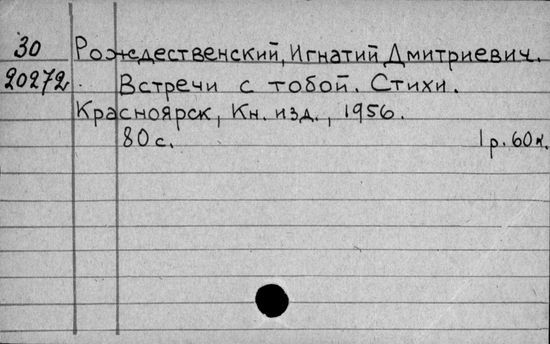 30 Рождественский, Игнатий Дмитриевич.
20272 Встречи с тобой. Стихи.
Красноярск, Кн. изд., 1956.
80 с. 1 р. 60 к.